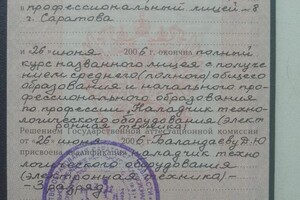 в профессиональный лицей №8
г. Саратова
и 26 июня 2006 г. окончил полный
курс названного лицея с получе
нием среднего (полного) общего
образования и начального про
фессионального образования
по профессии "Наладчик техно-
логического оборудования (элект
ронная техника)
Решением Государственной аттестационной комиссии
от "26 июня 2006
присвоена квалификация наладчик техно
логического оборудования
(электронная техника)-
-3 разряд